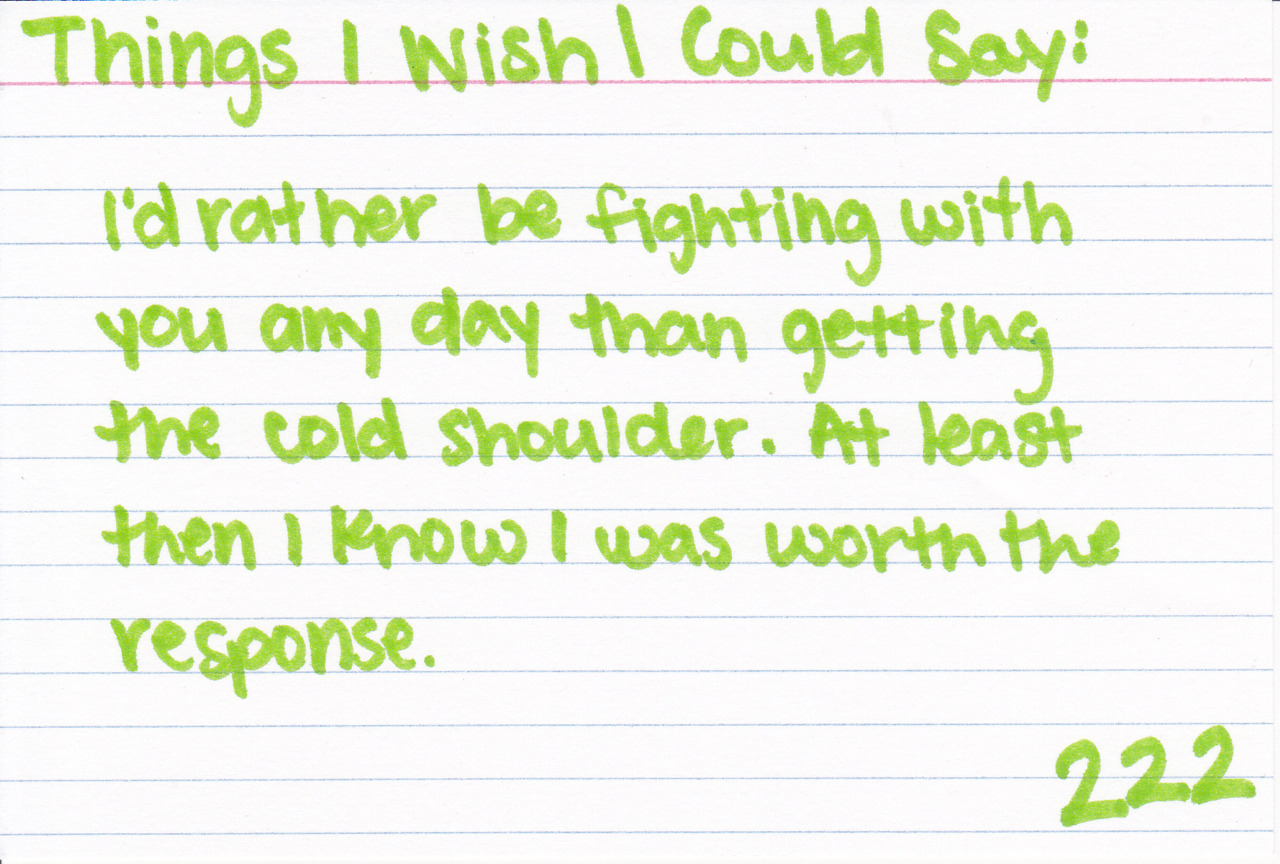 Things I Wish I Could Say:
I'd rather be fighting with
you any day than getting
the cold shoulder. At least
then I know I was worth the
response.
222